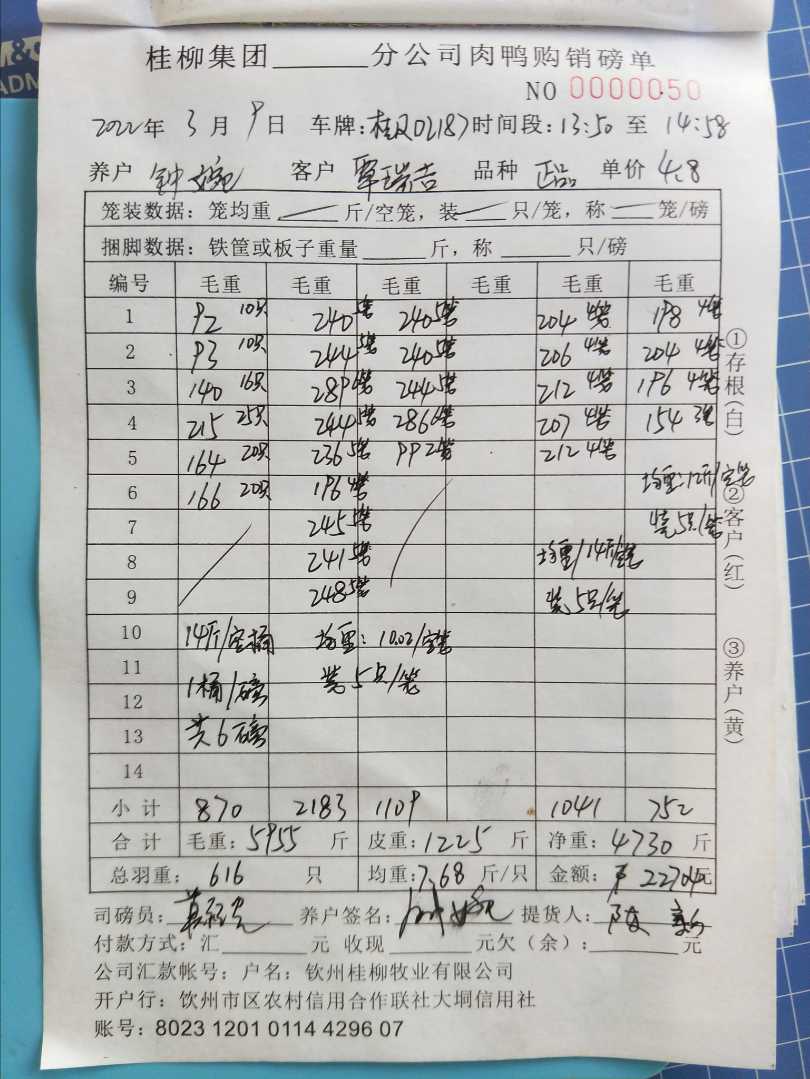 M&G
ADM
桂柳集团______分公司肉鸭购销磅单
NO 0000050
2022年 3月 9日 车牌:桂N02187 时间段:13:50 至 14:58
养户 钟婉 客户 覃瑞吉 品种 正品 单价 4.8
笼装数据:笼均重 ____ 斤/空笼,装____只/笼,称____笼/磅
捆脚数据:铁筐或板子重量______斤,称______只/磅
编号 毛重 毛重 毛重 毛重 毛重 毛重
1 92 10只 240 5笼 240 5笼 204 4笼 198 4笼
2 93 10只 244 5笼 240 5笼 206 4笼 204 4笼
3 140 16只 289 6笼 244 5笼 212 4笼 196 4笼
4 215 25只 244 5笼 286 6笼 207 4笼 154 3笼
5 164 20只 236 5笼 99 2笼 212 4笼
6 166 20只 196 4笼 均重:12斤/空笼
7 245 5笼 装5只/笼
8 241 5笼 均重/14斤/空笼
9 248 5笼 装5只/笼
10 14斤/空桶 均重:10.02/空笼
11 装5只/笼
12 1桶/磅
13 共6磅
14
小计 870 2183 1109 1041 752
合计 毛重:5955 斤 皮重:1225 斤 净重:4730 斤
总羽重: 616 只 均重:7.68 斤/只 金额: 22704元
①存根(白)
②客户(红)
③养户(黄)
司磅员: 养户签名:钟婉 提货人:
付款方式:汇______元 收现______元欠(余):______元
公司汇款帐号:户名:钦州桂柳牧业有限公司
开户行:钦州市区农村信用合作联社大垌信用社
账号:8023 1201 0114 4296 07